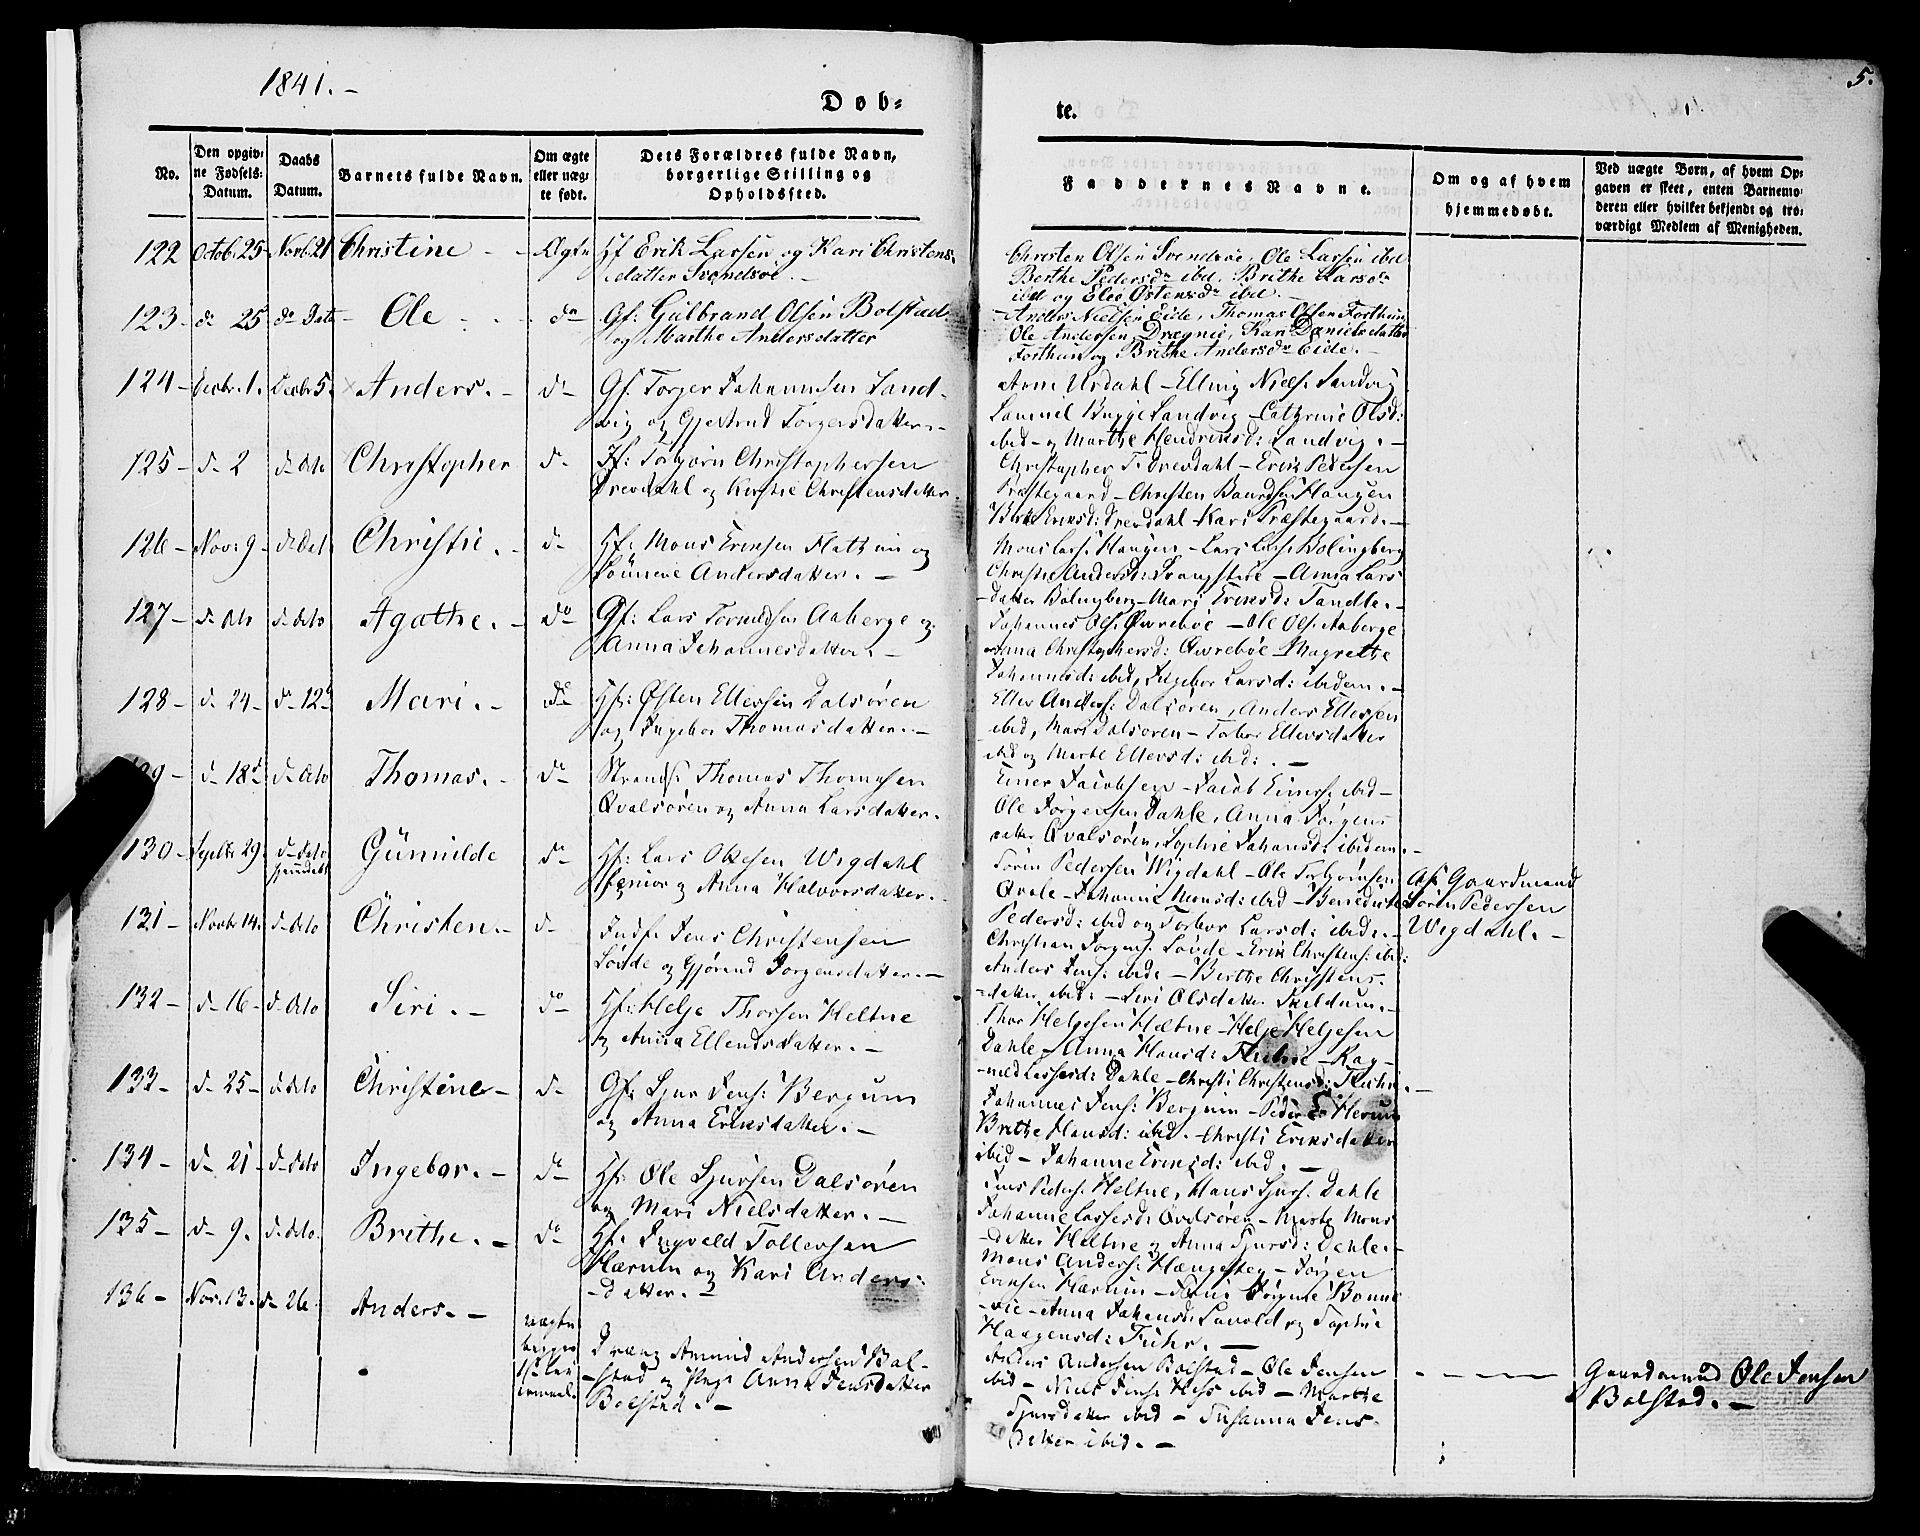 1841.-
Døb-
te.
5.
No.
Den opgiv-
ne Fødsels-
Datum.
Daabs
Datum.
Barnets fulde Navn.
Om ægte
eller uæg-
te født.
Dets Forældres fulde Navn,
borgerlige Stilling og
Opholdssted.
Faddernes Navne.
Om og af hvem
hjemmedøbt.
Ved uægte Børn, af hvem Op-
gaven er skeet, enten Barnemo-
deren eller hvilket bekjendt og tro-
værdigt Medlem af Menigheden.
122 Octob. 25 Novb. 21 Christine - - Ægte Hf Erik Lassen og Kari Christens
datter Svendsøe. -
Christen Olsen Svendsøe, Ole Lassen ibd
Berthe Pedersdr ibd, Brithe Larsdr
ibd og Eleo Ostensdr ibd. -
123- d 25 do Dato - Ole - - do Gf: Gulbrand Olsen Bolstad
og Marthe Andersdatter
Anders Nielsen Eide, Thomas Olsen Forthun
Ole Andersen Drægnie, Kari Danielsdatter
Forthun og Brithe Andersdr Eide. -
124- Decbr. 1. Decbr 5. Anders. - d- Gf. Torger Johannesen Sand-
vig og Gjertrud Torgersdatter. -
Arne Urdahl - Elling Niels. Sandvig
Samuel Bugge Sandvig - Cathrine Olsd:
ibid - og Marthe Hendriksd: Sandvig. -
125- d- 2 d- dto Christopher d- Hf: Torbjørn Christophersen
Drevdahl og Kirstie Christensdatter.
Christopher T. Drevdahl - Erik Pedersen
Præstegaard - Christen Baardsen Haugen
Birte Eriksd: Drevdahl - Kari Præstegaard. -
126- Nov: 9- d- Dat Christie. - d- Hf: Mons Eriksen Flathun og
Sünneve Andersdatter. -
Mons Lars. Haugen - Lars Lars. Bolingberg
Christie Andersd: - Anna Lars
datter Bolingberg - Mari Eriksd: Tandle. -
127- d- dto d- dato Agathe. - do Gf: Lars Aaberge og
Anna Johannesdatter. -
Johannes Ols. Øvrebøe - Ole Ols. Aaberge
Anna Christophersd: Øvrebøe - Magrethe
Johannesd: ibid, Ingebor Larsd: ibidem. -
128- d- 24- d- 12d Mari. - do Hf: Østen Ellersen Dalsøren
og Ingebor Thomasdatter. -
Eller Anders: Dalsøren, Anders Ellersen
ibid, Mari Dalsøren - Torbor Ellersdatter
ibid og Marte Ellersd: ibid: . -
d- 18d- d- dto Thomas. - do Strands. Thomas Thomasen
Qvalsøren og Anna Larsdatter.
Einer Jacobsen - Jacob Einers. ibid -
Ole Jørgensen Dahle, Anna Jørgens
datter Qvalsøren, Sophie Johansd: ibidem. -
130- Septbr 29. d- dato hjemdøbt Gunnilde d- Hf: Lars Olsen Wigdahl
senior og Anna Halvorsdatter. -
Sørin Pedersen Wigdahl - Ole Torbjørnsen
Qvale - Johanne Monsd: ibid - Benedicte
Pedersd: ibid og Torbor Larsd: ibid: -
Af Gaardmand
Sørin Pedersen
Wigdahl. -
131- Novbr 14. d- dato Christen. - d- Indf. Jens Christensen
Løvde og Gjørend Jørgensdatter. -
Christian Jørgens. Løvde - Erik Christens: ibd:
Anders Jens: ibd: - Berthe Christens-
datter ibid: - Siri Olsdatter -
132- d- 16- d- dto Siri. - do Hf: Helje Thorsen Heltne
og Anna Ellendsdatter. -
Thor Helgesen Heltne - Helje Heljesen
Dahle - Anna Hansd: - Rag-
nild Lassesd: Dahle - Christi Christensd: -
133- d- 25- d- dato Christine - d- Gf: Sjur Jens: Bergum
og Anna Eriksdatter. -
Johannes Jens: Bergum - Peder E. Herum
Brithe Hansd: ibid. - Christi Eriksdatter
ibid - Johanne Eriksd: ibid. -
134- d- 21- d- dato Ingebor. - do Hf: Ole Sjursen Dalsøren
og Mari Nielsdatter. -
Jens Peders. Heltne, Hans Sjurs. Dahle
Johanne Lassesd: Qvalsøren - Marte Mons-
datter Heltne og Anna Sjursd: Dahle. -
135- d- 9. d- dato Brithe. - do Hf: Ingveld Tollefsen
Hærum og Kari Anders-
datter. -
Mons Anders. - Jørgen
Eriksen Hærum - Bonne-
vie - Anna og Sophie
Haagensd: Fuhr. -
136- Nov. 13. d- 26. Anders. - uægte Dreng Amund Andersen Bol-
stad og Pige Anna Jensdatter
Bolstad. -
Anders Andersen Bolstad - Ole Jensen
ibid - Niels Jens. ibid - Marthe
Sjursdatter ibid - Susanna Jens-
datter ibid. -
Gaardmand Ole Jensen
Bolstad. -